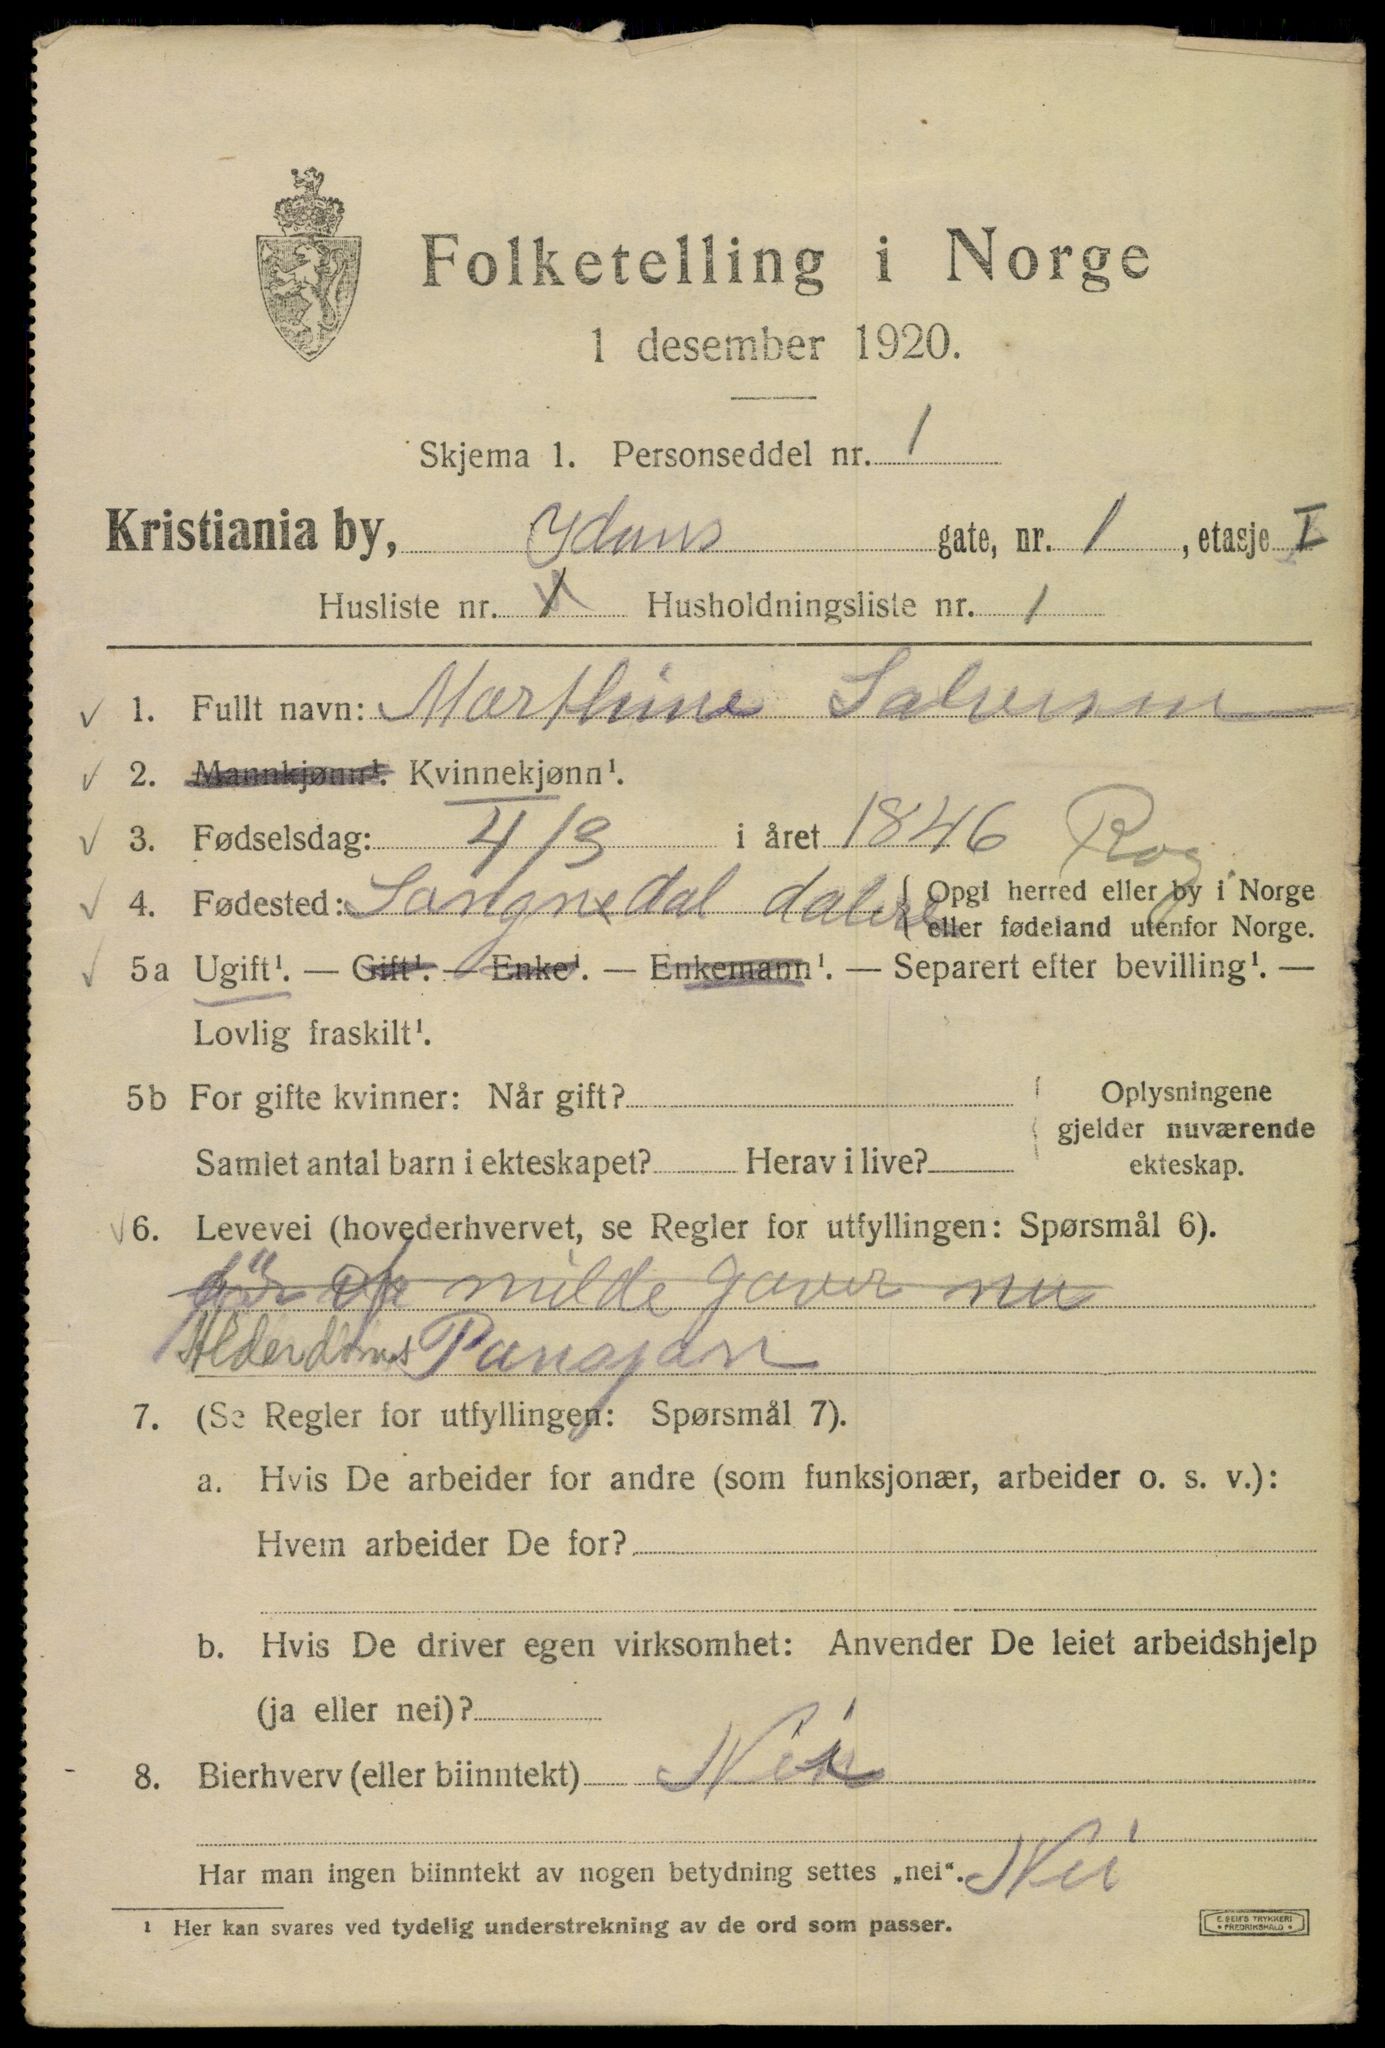 Folketelling i Norge
1 desember 1920.
Skjema 1. Personseddel nr. 1
Kristiania by, Yduns gate, nr. 1, etasje I
Husliste nr. 1 Husholdningsliste nr. 1
1. Fullt navn: Marthine Salvesen
2. Mannkjønn¹. Kvinnekjønn¹.
3. Fødselsdag: 4/3 i året 1846 Rog
4. Fødested: Sangnedal { Opgi herred eller by i Norge
eller fødeland utenfor Norge.
5a Ugift¹. — Gift¹. — Enke¹. — Enkemann¹. — Separert efter bevilling¹. —
Lovlig fraskilt¹.
5b For gifte kvinner: Når gift? Oplysningene
gjelder nuværende
Samlet antal barn i ekteskapet? Herav i live? ekteskap.
6. Levevei (hovederhvervet, se Regler for utfyllingen: Spørsmål 6).
för af milde gaver nu
Alderdoms Pansjon
7. (Se Regler for utfyllingen: Spørsmål 7).
a. Hvis De arbeider for andre (som funksjonær, arbeider o. s. v.):
Hvem arbeider De for?
b. Hvis De driver egen virksomhet: Anvender De leiet arbeidshjelp
(ja eller nei)?
8. Bierhverv (eller biinntekt) Nei
Har man ingen biinntekt av nogen betydning settes „nei“. Nei
¹ Her kan svares ved tydelig understrekning av de ord som passer.
E. SEM'S TRYKKERI
FREDRIKSHALD